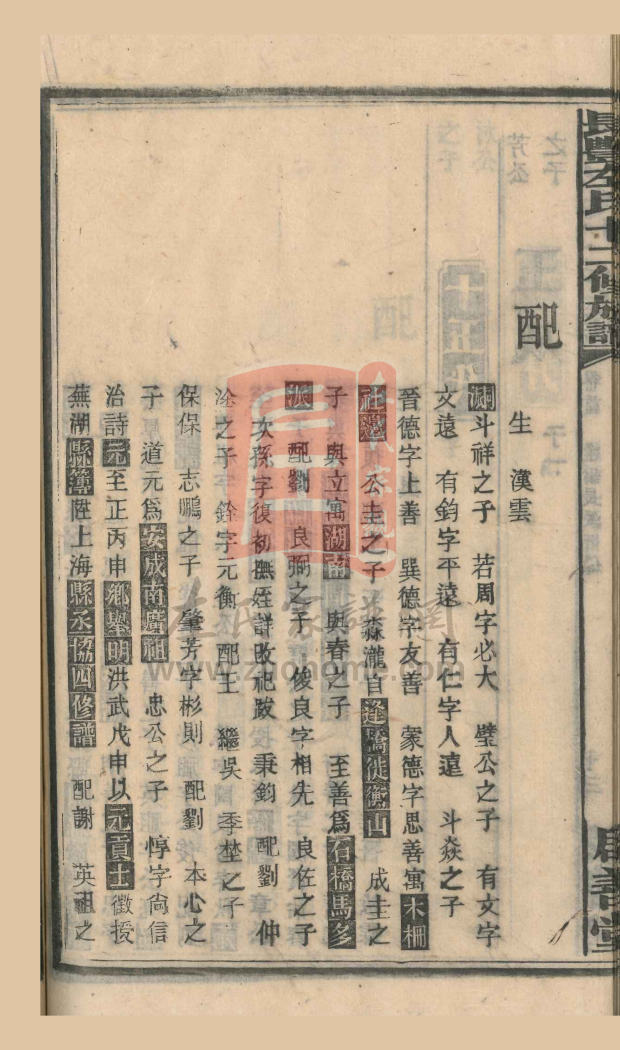 長豐左氏十二修族譜
居善堂
配
生　漢雲
斗祥之子　若周字必大　璧公之子　有文字
文遠　有鈞字平遠　有仁字人遠　斗焱之子
晉德字上善　巽德字友善　蒙德字思善寓木柵
社邊　公圭之子　淼瀧自逢橋徙衡山　成圭之
子　與立寓湖南　與春之子　至善爲石橋馬多
派　配劉　良弼之子　俊良字相先　良佐之子
次孫字復初撫姪詳改祀跋　秉鈞　配劉　仲
淦之子　字銓字元衡　配王　繼吳　季埜之子
保保　志鵬之子　肇芳字彬則　配劉　本心之
子　道元爲安成南廣祖　忠公之子　惇字尙信
治詩元至正丙申鄉舉明洪武戊申以元貢士徵授
蕪湖縣簿陞上海縣丞協四修譜　配謝　英祖之
左氏家譜網
www.zuohome.com